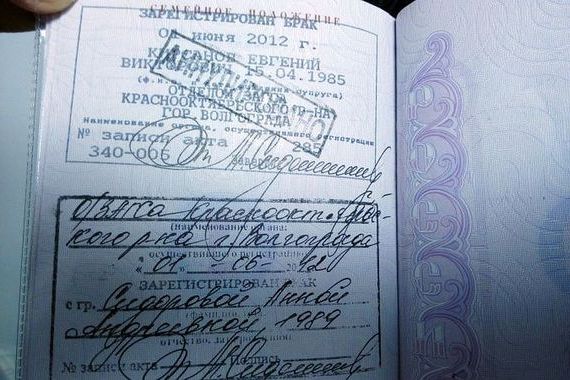 СЕМЕЙНОЕ ПОЛОЖЕНИЕ
ЗАРЕГИСТРИРОВАН БРАК
01 июня 2012 г.
ЕВГЕНИЙ
15.04.1985
супруга)
ОТДЕЛОМ ЗАГСА
КРАСНООКТЯБРЬСКОГО Р-НА
ГОР. ВОЛГОГРАДА
Наименование органа, осуществившего регистрацию
№ записи акта 285
340-006
О/ЗАГСа Краснооктябрьс-
кого р-на г. Волгограда
(наименование органа,
осуществившего регистрацию)
"01" - 06 - 2012
ЗАРЕГИСТРИРОВАН БРАК
с гр. Сидоровой Анной
Андреевной, 1989
отчество, дата рожд.
№ записи акта Подпись